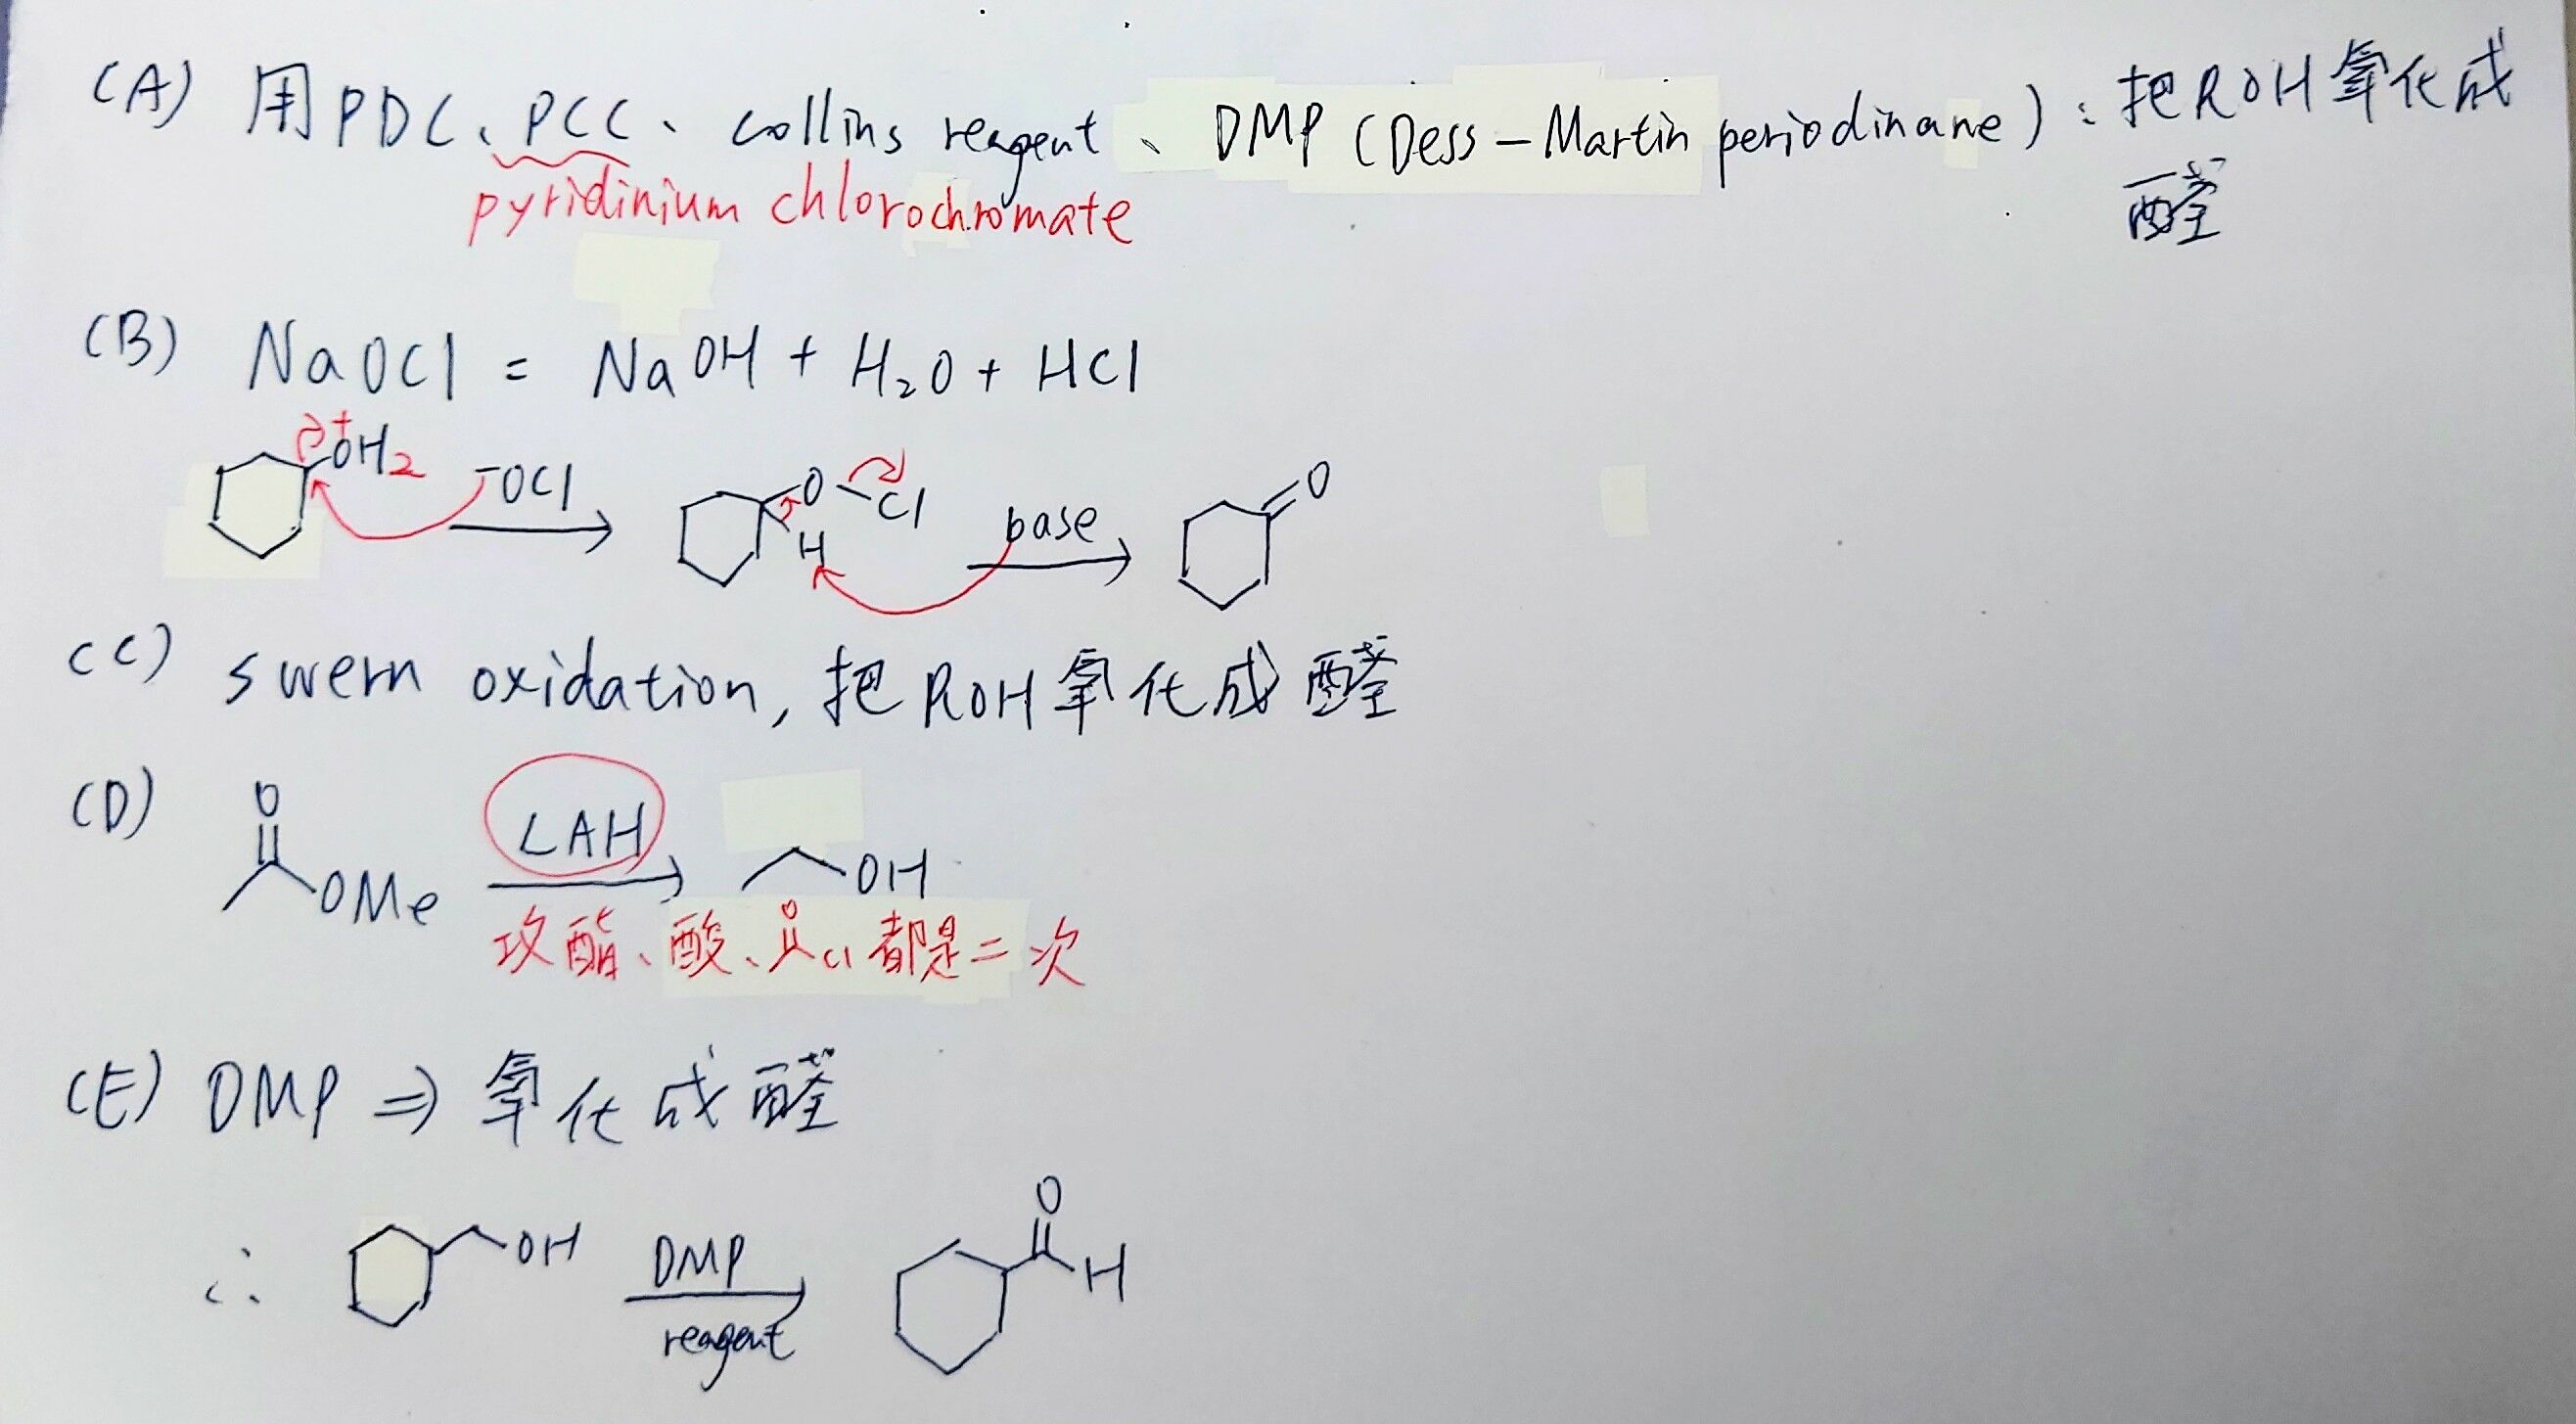 (A) 用PDC、PCC、collins reagent、DMP (Dess-Martin periodinane):把ROH氧化成
醛
pyridinium chlorochromate
(B) NaOCl = NaOH + H₂O + HCl
+
OH₂ ⁻OCl O Cl H base O
(C) swern oxidation, 把ROH氧化成醛
(D) O OMe LAH OH
攻酯、酸、O Cl 都是二次
(E) DMP ⇒ 氧化成醛
∴ OH DMP O H
reagent